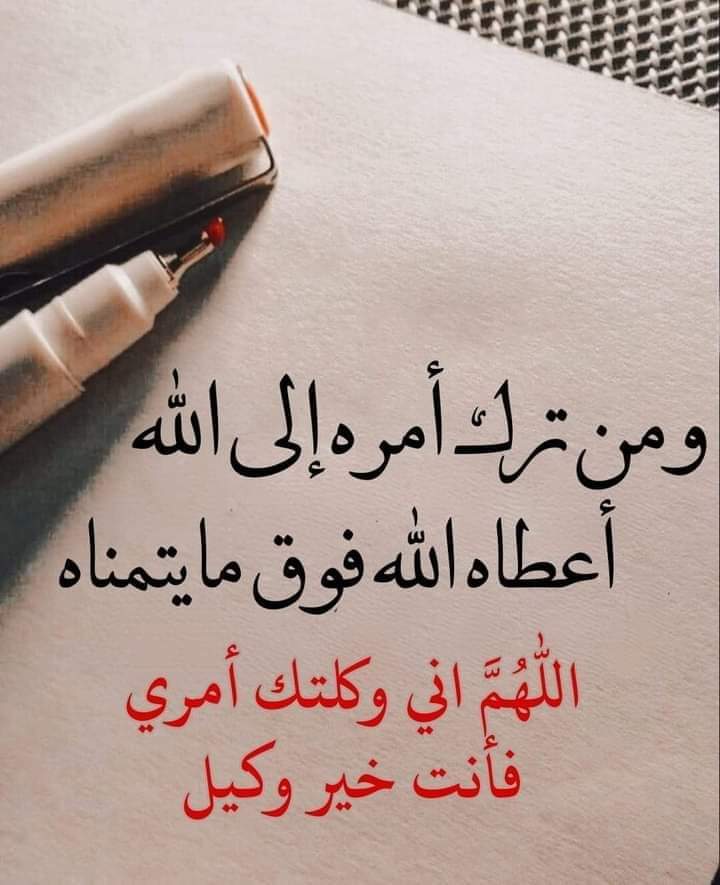 ومن ترك أمره إلى الله
أعطاه الله فوق ما يتمناه
اللَّهُمَّ اني وكلتك أمري
فأنت خير وكيل